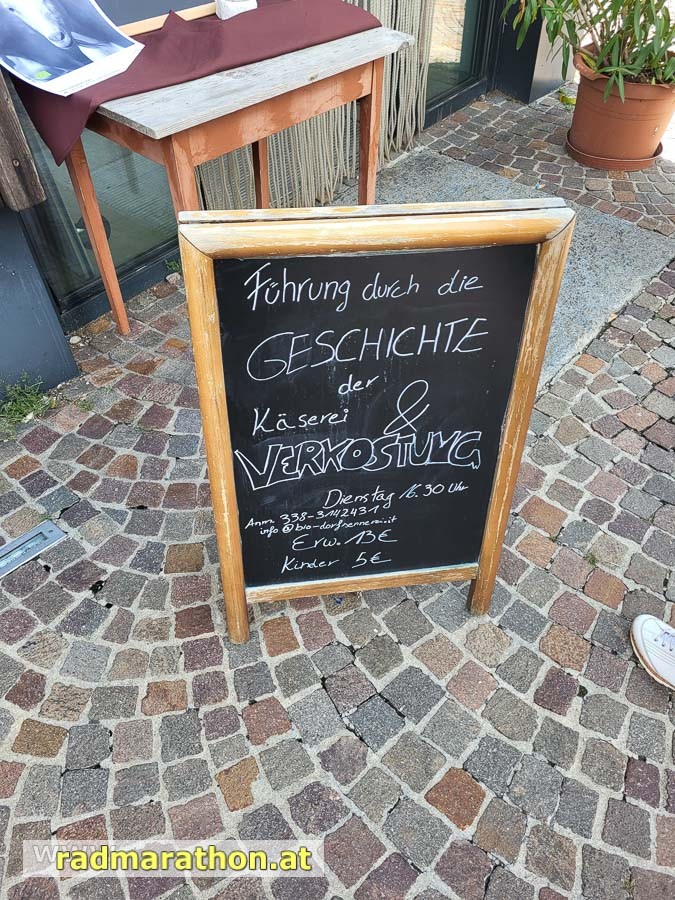 Führung durch die
GESCHICHTE
der
Käserei &
VERKOSTUNG
Dienstag 16.30 Uhr
Anm. 338-3142431
info@bio-dorfsennerei.it
Erw. 13€
Kinder 5€
www.radmarathon.at